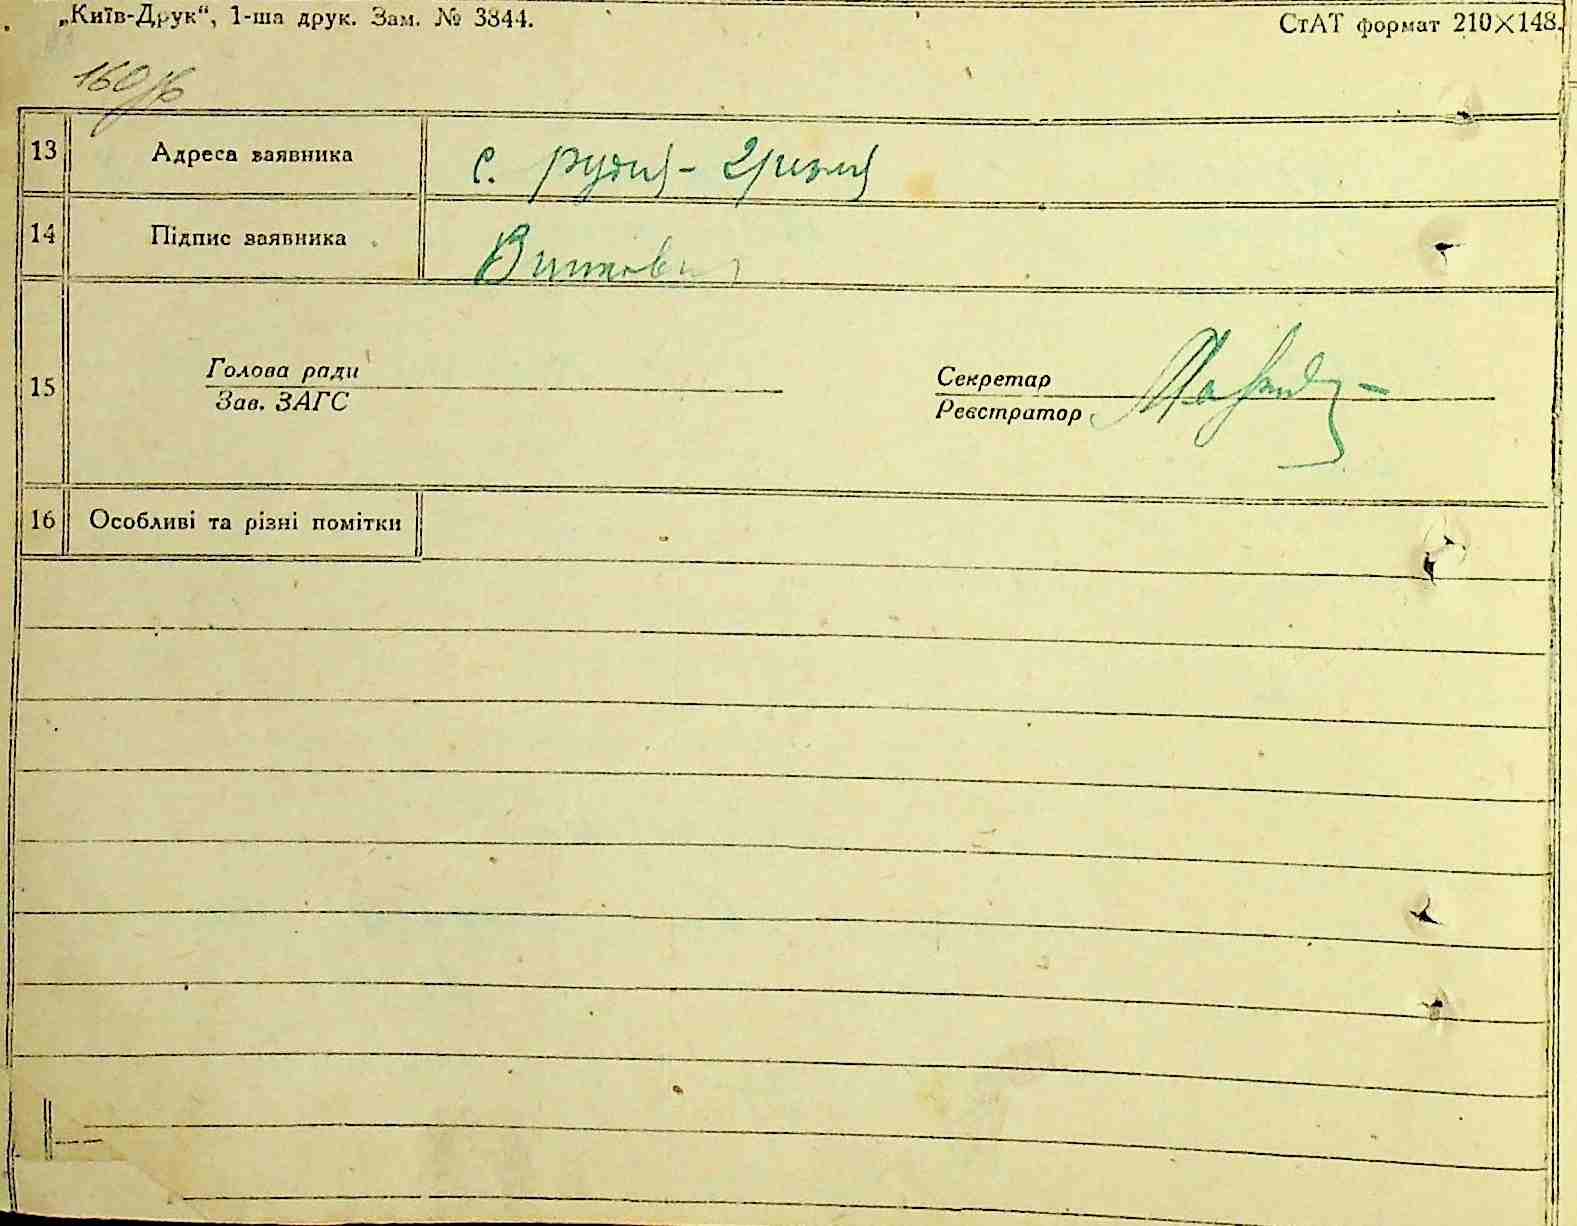 „Київ-Друк“, 1-ша друк. Зам. № 3844.
СтАТ формат 210×148.
160
13 Адреса заявника с. Рудня-
14 Підпис заявника
15 Голова ради
Зав. ЗАГС
Секретар
Реєстратор
16 Особливі та різні помітки